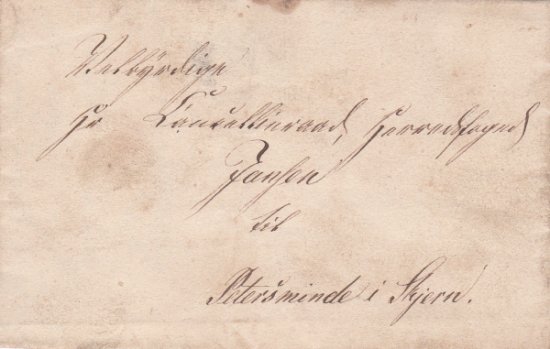 Velbyrdige
Hr Cancelliеraad, Herredsfoged
Jansen
til
Petersminde i Skjern.